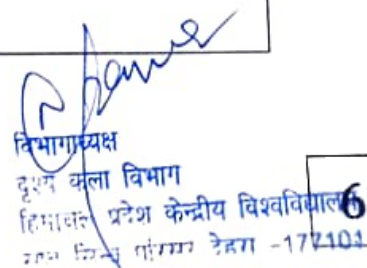 विभागाध्यक्ष
दृश्य कला विभाग
हिमाचल प्रदेश केन्द्रीय विश्वविद्यालय
6
परिसर देहरा -177101